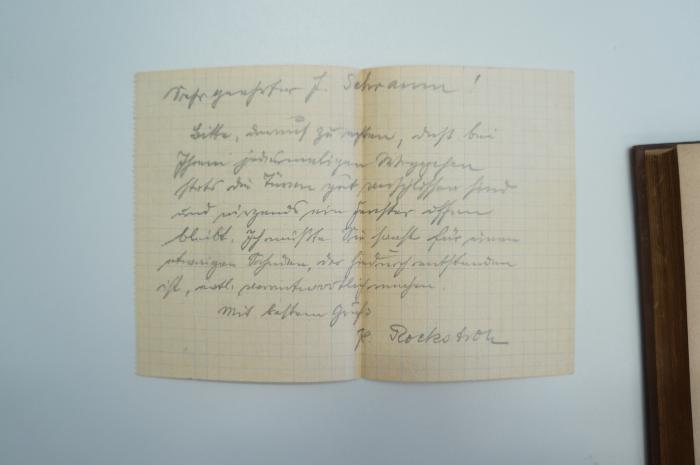 Sehr geehrter J. Schramm!
Bitte, darauf zu achten, daß bei
Ihrem jedesmaligen Weggehen
stets die Türen gut verschlossen sind
und nirgends ein Fenster offen
bleibt. Ich müßte Sie sonst für einen
etwaigen Schaden, der hiedurch entstanden
ist, evtl. verantwortlich machen.
Mit bestem Gruß
Rockstroh